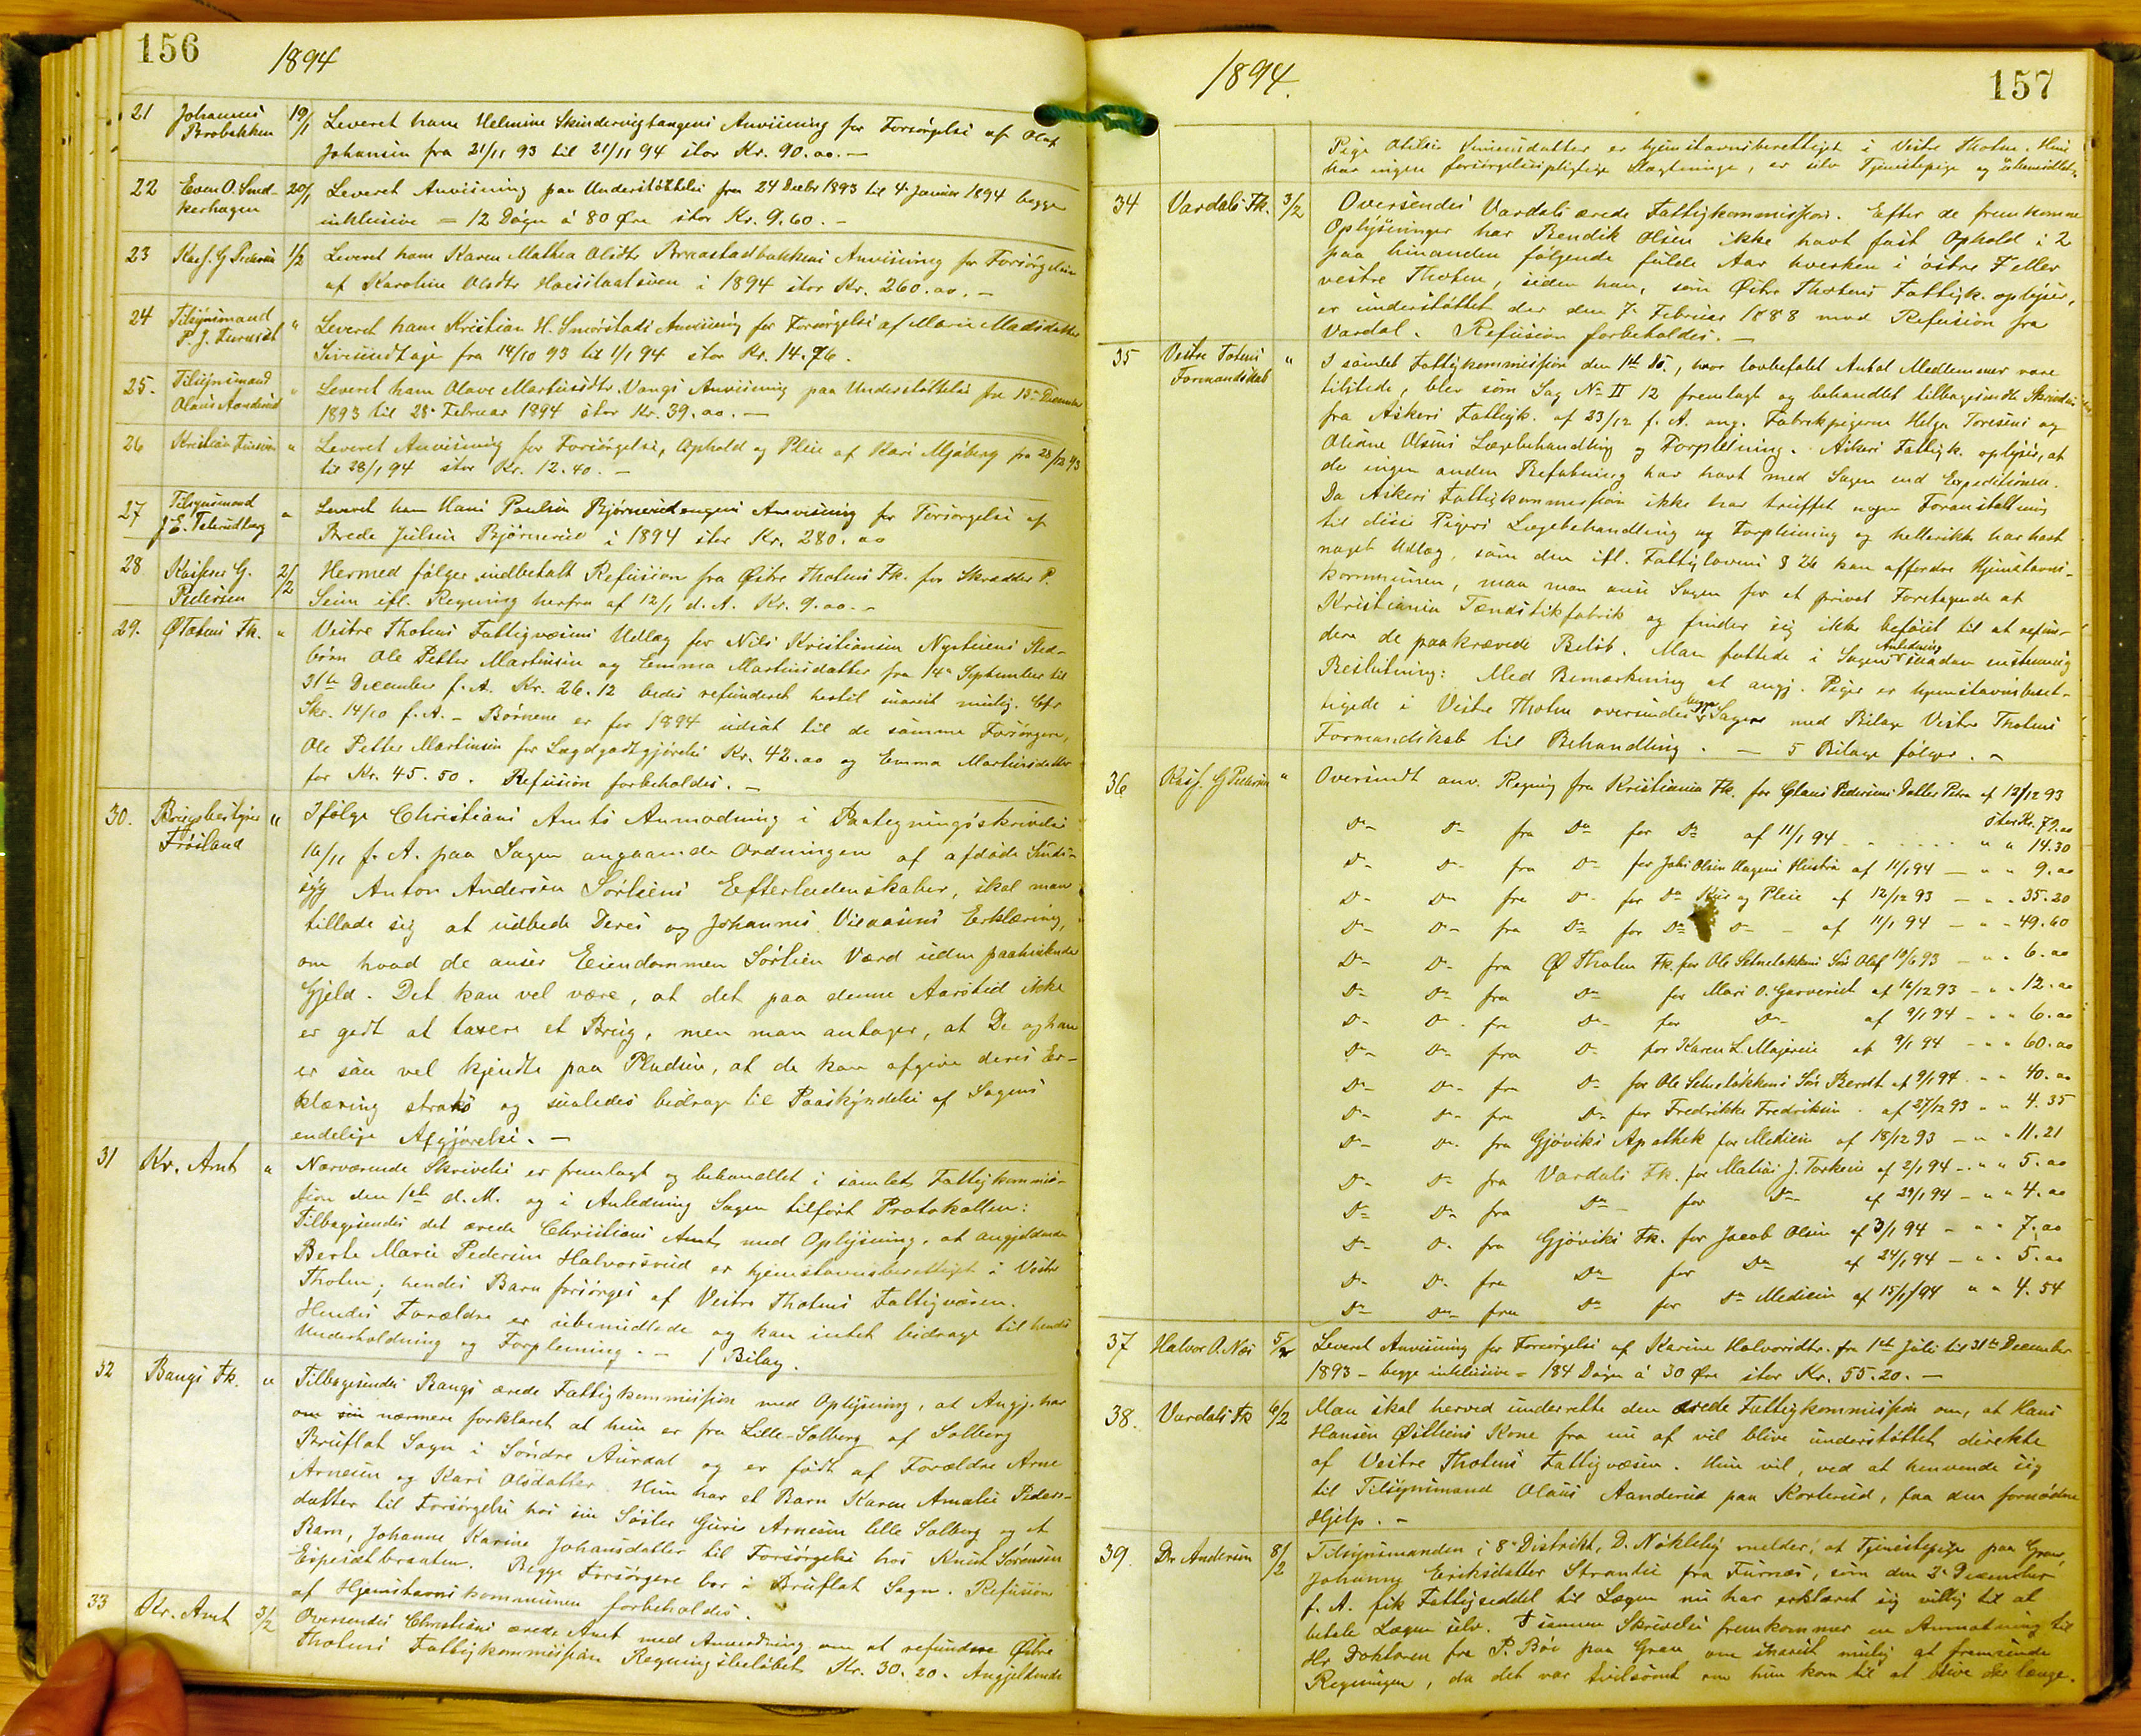 156
1894
21 Johannes Brobakken 19/1 Leveret ham Helmine Skindervigtangens Anvisning for Forsørgelse af Olaf
Johansen fra 21/11 93 til 21/11 94 stor Kr. 90.00.-
22 Even O. Smed-kerhagen 20/1 Leveret Anvisning paa Understøttelse fra 24 Decbr 1893 til 4. Januar 1894 begge
inklusive = 12 Døgn á 80 Øre stor Kr. 9.60.-
23 Kasf. G Pedersen 1/2 Leveret ham Karen Mathea Olsdtr Braastadbakkens Anvisning for Forsørgelse
af Karoline Olsdtr i 1894 stor Kr. 260.00.-
24 Tilsynsmand P. J. " Leveret ham Kristian H. Smørstads Anvisning for Forsørgelse af Maren Madsdatter
fra 14/10 93 til 1/1 94 stor Kr. 14.76.
25. Tilsynsmand Olaus Aanderud " Leveret ham Olave Martinsdtr. Vangs Anvisning paa Understøttelse fra 13de December
1893 til 28. Februar 1894 stor Kr. 39.00.-
26 Kristian " Leveret Anvisning for Forsørgelse, Ophold og Pleie af Kari Mjøberg fra 23/12 93
til 28/1 94 stor Kr. 12.40.-
27 Tilsynsmand J. E. " Leveret ham Hans Paulsen Bjørnerudengens Anvisning for Forsørgelse af
Brede Julsen Bjørnerud i 1894 stor Kr. 280.00
28 Kasserer G. Pedersen 2/2 Hermed følger indbetalt Refusion fra Østre Thotens Fk. for Skrædder P.
Seim ifl. Regning herfra af 12/1 d. A. Kr. 9.00.-
29. ØTotens Fk. " Vestre Thotens Fattigvæsens Udlæg for Nils Kristiansen Nystuens Sted-
børn Ole Petter Martinsen og Emma Martinsdatter fra 14de September til
31te December f. A. Kr. 26.12 bedes refunderet hertil snarest mulig. Cfr
Skr. 14/10 f. A. - Børnene er for 1894 udsat til de samme Forsørgere,
Ole Petter Martinsen for Lægdgodtgjørelse Kr. 42.00 og Emma Martinsdatter
for Kr. 45.50. Refusion forbeholdes.-
30. Brugsbestyrer Frøiland " Ifølge Christians Amts Anmodning i Paategningsskrivelse
16/11 f. A. paa Sagen angaaende Ordningen af afdøde Sinds-
syg Anton Andersen Sørliens Efterladenskaber, skal man
tillade sig at udbede Deres og Johannes Erklæring,
om hvad de anser Eiendommen Sørlien Værd uden paahvilende
Gjeld. Det kan vel være, at det paa denne Aarstid ikke
er godt at taxere et Brug, men man antager, at De og han
er saa vel kjendte paa Pladsen, at de kan afgive deres Er-
klæring straks og saaledes bidrage til Paaskyndelse af Sagens
endelige Afgjørelse.-
31 Kr. Amt " Nærværende Skrivelse er fremlagt og behandlet i samlet Fattigkommis-
sion den 1ste d. M. og i Anledning Sagen tilført Protokollen:
Tilbagesendes det ærede Christians Amt med Oplysning, at angjeldende
Berte Marie Pedersen Halvorsrud er hjemstavnsberettiget i Vestre
Thoten; hendes Barn forsørges af Vestre Thotens Fattigvæsen.
Hendes Forældre er ubemidlede og kan intet bidrage til hendes
Underholdning og Forpleining.- 1 Bilag.
32 Bangs Fk. " Tilbagesendes Bangs ærede Fattigkommission med Oplysning, at Angj. har
om sin nærmere forklaret at hun er fra Lille-Solberg af Solberg
Bruflat Sogn i Søndre Aurdal og er født af Forældre Arne
Arnesen og Kari Olsdatter. Hun har et Barn Karen Amalie Peders-
datter til Forsørgelse hos sin Søster Guri Arnesen lille Solberg og et
Barn, Johanne Karine Johansdatter til Forsørgelse hos Knut Sørensen
Espesetbraaten. Begge Forsørgere bor i Bruflat Sogn. Refusion
af Hjemstavnskommunen forbeholdes.
33 Kr. Amt 3/2 Oversendes Christians ærede Amt med Anmodning om at refundere Østre
Thotens Fattigkommission Regningsbeløbet Kr. 30.20. Angjeldende
1894.
157
Pige Otilie Simensdatter er hjemstavnsberettiget i Vestre Thoten. Hun
har ingen forsørgelsespligtige Slægtninge, er selv Tjenestepige og ubemidlet.
34 Vardals Fk. 3/2 Oversendes Vardals ærede Fattigkommission. Efter de fremkomne
Oplysninger har Bendik Olsen ikke havt fast Ophold i 2
paa hinanden følgende fulde Aar hverken i østre Feller
vestre Thoten, siden han, som Østre Thotens Fattigk. oplyser,
er understøttet der den 7. Februar 1888 mod Refusion fra
Vardal. Refusion forbeholdes.-
35 Vestre Totens Formandskab " I samlet Fattigkommission den 1ste ds., hvor lovbefalet Antal Medlemmer vare
tilstede, blev som Sag No II 12 fremlagt og behandlet tilbagesendt Skrivelse
fra Askers Fattigk. af 23/12 f. A. ang. Fabrikpigerne Helga Toresens og
Oliane Olsens Lægebehandling og Forpleining. Askers Fattigk. oplyser, at
de ingen anden Befatning har havt med Sagen end Expeditionen.
Da Askers Fattigkommission ikke har truffet nogen Foranstaltning
til disse Pigers Lægebehandling og Forpleining og hellerikke har havt
noget Udlæg, som den ifl. Fattiglovens § 26 kan affordre Hjemstavns-
kommunen, maa man anse Sagen for et privat Foretagende af
Kristiania Tændstikfabrik og finder sig ikke beføiet til at refun-
dere de paakrævede Beløb. Man fattede i Sagens Anledning saadan enstemmig
Beslutning: Med Bemærkning at angj. Piger er hjemstavnsberet-
tigede i Vestre Thoten oversendes begge Sagene med Bilage Vestre Thotens
Formandskab til Behandling.- 5 Bilage følger.-
36 Kasf. G Pedersen " Oversendt anv. Regning fra Kristiania Fk. for Claus Pedersens Datter Petra af 12/12 93
stor Kr. 79.00
Do Do fra Do for Do af 11/1 94 - " " 14.30
Do Do fra Do for Johs Olsen Hagens Hustru af 11/1 94 - " " 9.00
Do Do fra Do for Do Kur og Pleie af 12/12 93 - " " 35.20
Do Do fra Do for Do Do - af 11/1 94 - " " 49.60
Do Do fra Ø Thoten Fk. for Ole Setneløkkens Søn Olaf 10/6 93 - " " 6.00
Do Do fra Do for Mari O. Garverist af 16/12 93 - " " 12.00
Do Do fra Do for Do af 9/1 94 - " " 6.00
Do Do fra Do for Karen L. Majerie af 9/1 94 - " " 60.00
Do Do fra Do for Ole Setneløkkens Søn Berndt af 9/1 94 " " 40.00
Do Do fra Do for Fredrikke Fredriksen af 27/12 93 " " 4.35
Do Do fra Gjøviks Apothek for Medicin af 18/12 93 - " " 11.21
Do Do fra Vardals Fk. for Matias J. af 2/1 94 - " " 5.00
Do Do fra Do for Do af 29/1 94 - " " 4.00
Do Do fra Gjøviks Fk. for Jacob Olsen af 3/1 94 - " " 7.00
Do Do fra Do for Do af 24/1 94 - " " 5.00
Do Do fra Do for Do Medicin af 15/1/94 " " 4.54
37 Halvor A. Næs 5/2 Leveret Anvisning for Forsørgelse af Karine Halvorsdtr. fra 1ste Juli til 31te December
1893 - begge inklusive = 184 Døgn á 30 Øre stor Kr. 55.20.-
38. Vardals Fk 6/2 Man skal herved underrette den ærede Fattigkommission om, at Hans
Hansen Østliens Kone fra nu af vil blive understøttet direkte
af Vestre Thotens Fattigvæsen. Hun vil, ved at henvende sig
til Tilsynsmand Olaus Aanderud paa Korterud, faa den fornødne
Hjelp.-
39. Dr. Andersen 8/2 Tilsynsmanden i 8de Distrikt, D. Nøkleby melder, at Tjenestepige paa Gran,
Johanne Eriksdatter Strande fra Furnæs, som den 2. December
f. A. fik Fattigseddel til Lægen nu har erklæret sig villig til at
betale Lægen selv. I samme Skrivelse fremkommer en Anmodning til
Hr. Doktoren fra P. Bøe paa Gran om snarest mulig at fremsende
Regningen, da det var tvilsomt om hun kom til at blive der længe.